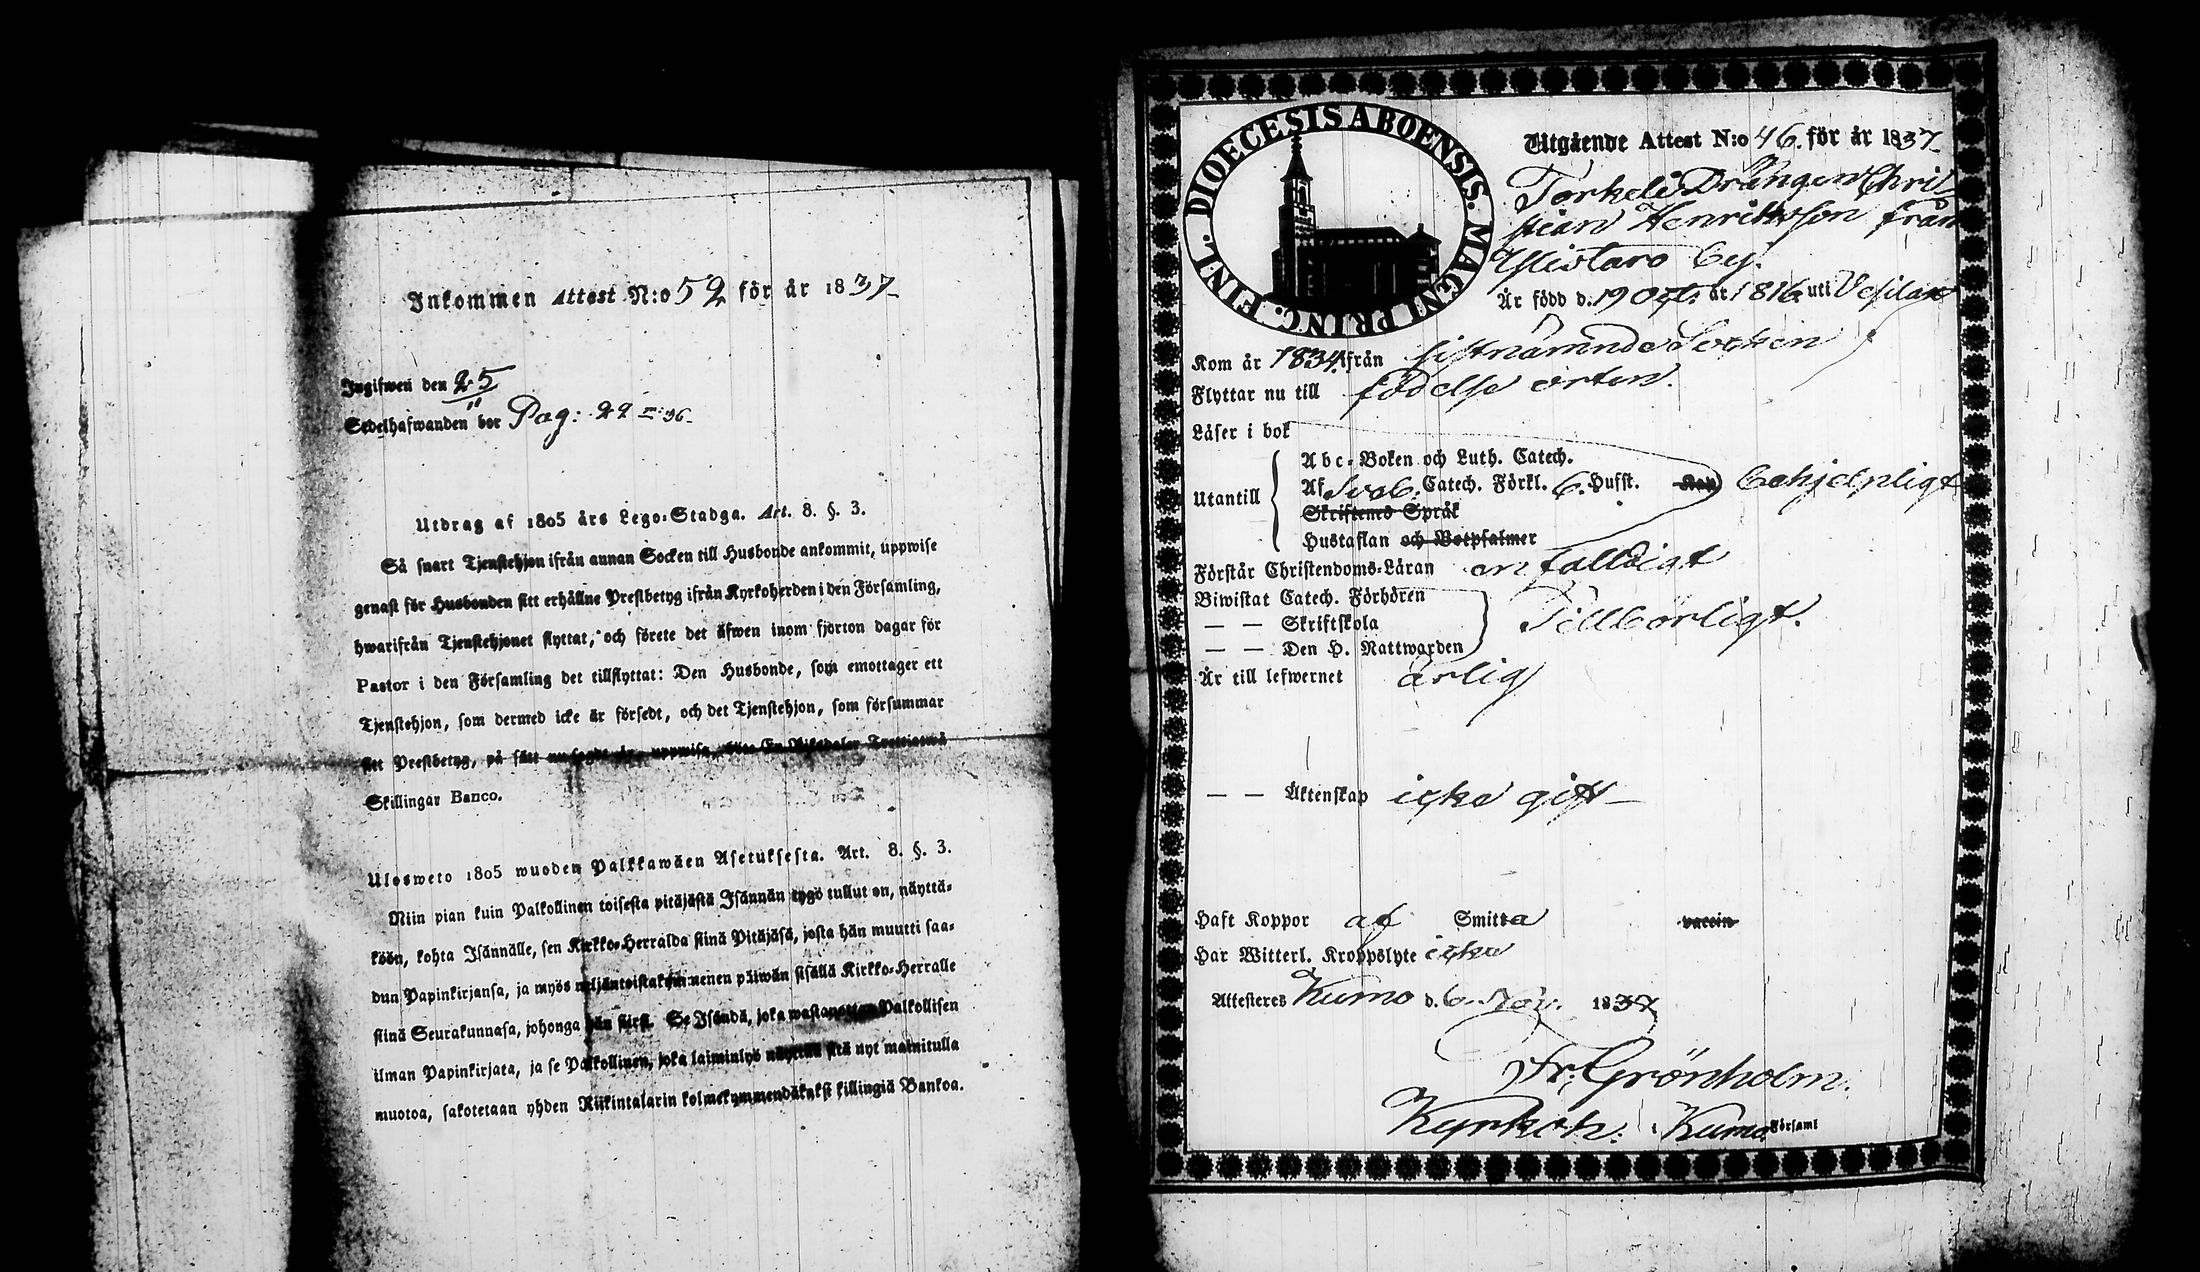 Inkommen Attest N:o 52 för år 1837
Ingifwen den 25
Sedelhafwanden bor Pag: 22
Utdrag af 1805 års Lego-Stadga. Art. 8. §. 3.
Så snart Tjenstehjon ifrån annan Socken till Husbonde ankommit, uppwise
genast för Husbonden sitt erhållne Prestbetyg ifrån Kyrkoherden i den Församling,
hwarifrån Tjenstehjonet flyttat, och förete det äfwen inom fjorton dagar för
Pastor i den Församling det tillflyttat: Den Husbonde, som emottager ett
Tjenstehjon, som dermed icke är försedt, och det Tjenstehjon, som försummar
sitt Prestbetyg, på sätt nu sagdt är, uppwisa, böte En Riksdaler Trettiotwå
Skillingar Banco.
Ulosweto 1805 wuoden Palkkawäen Asetuksesta. Art. 8. §. 3.
Niin pian kuin Palkollinen toisesta pitäjästä Isännän tygö tullut on, näyttä-
köön, kohta Isännälle, sen Kirkko-Herralda siinä Pitäjäsä, josta hän muutti saa-
dun Papinkirjansa, ja myös neljäntoistakymmenen päiwän sisällä Kirkko-Herralle
siinä Seurakunnasa, johonga hän siirsi. Se Isändä, joka wastanottaa Palkollisen
ilman Papinkirjata, ja se Palkollinen, joka laiminlyö näyttää sitä nyt mainitulla
muotoa, sakotetaan yhden Riikintalarin kolmekymmendäkaksi killingiä Bankoa.
DIOECESIS ABOENSIS. MAGNI PRINC. FINL.
Utgående Attest N:o 46 för år 1837
Torkels Drängen Chri
stian Henriksson från
Ylistaro by.
Är född d. 19 Oct. år 1816 uti Vesilax
Kom år 1834 ifrån sistnämnde Socken
Flyttar nu till födelse orten.
Läser i bok
Abc-Boken och Luth. Catech.
Utantill Af Sveb. Catech. Förkl. 6. Hufst. behjelpligt
Skriftenes Språk
Hustaflan och Botpsalmer
Förstår Christendoms-Läran enfalldigt
Biwistat Catech. Förhören
— — Skriftskola Tillbörligt.
— — Den H. Nattwarden
Är till lefwernet ärlig
— — Äktenskap icke gift
Haft Koppor af Smitta vaccin
Har Witterl. Kroppslyte icke
Attesteres Kumo d. 6. Nov. 1837
Fr. Grönholm.
Kyrkoh. i Kumo Församl